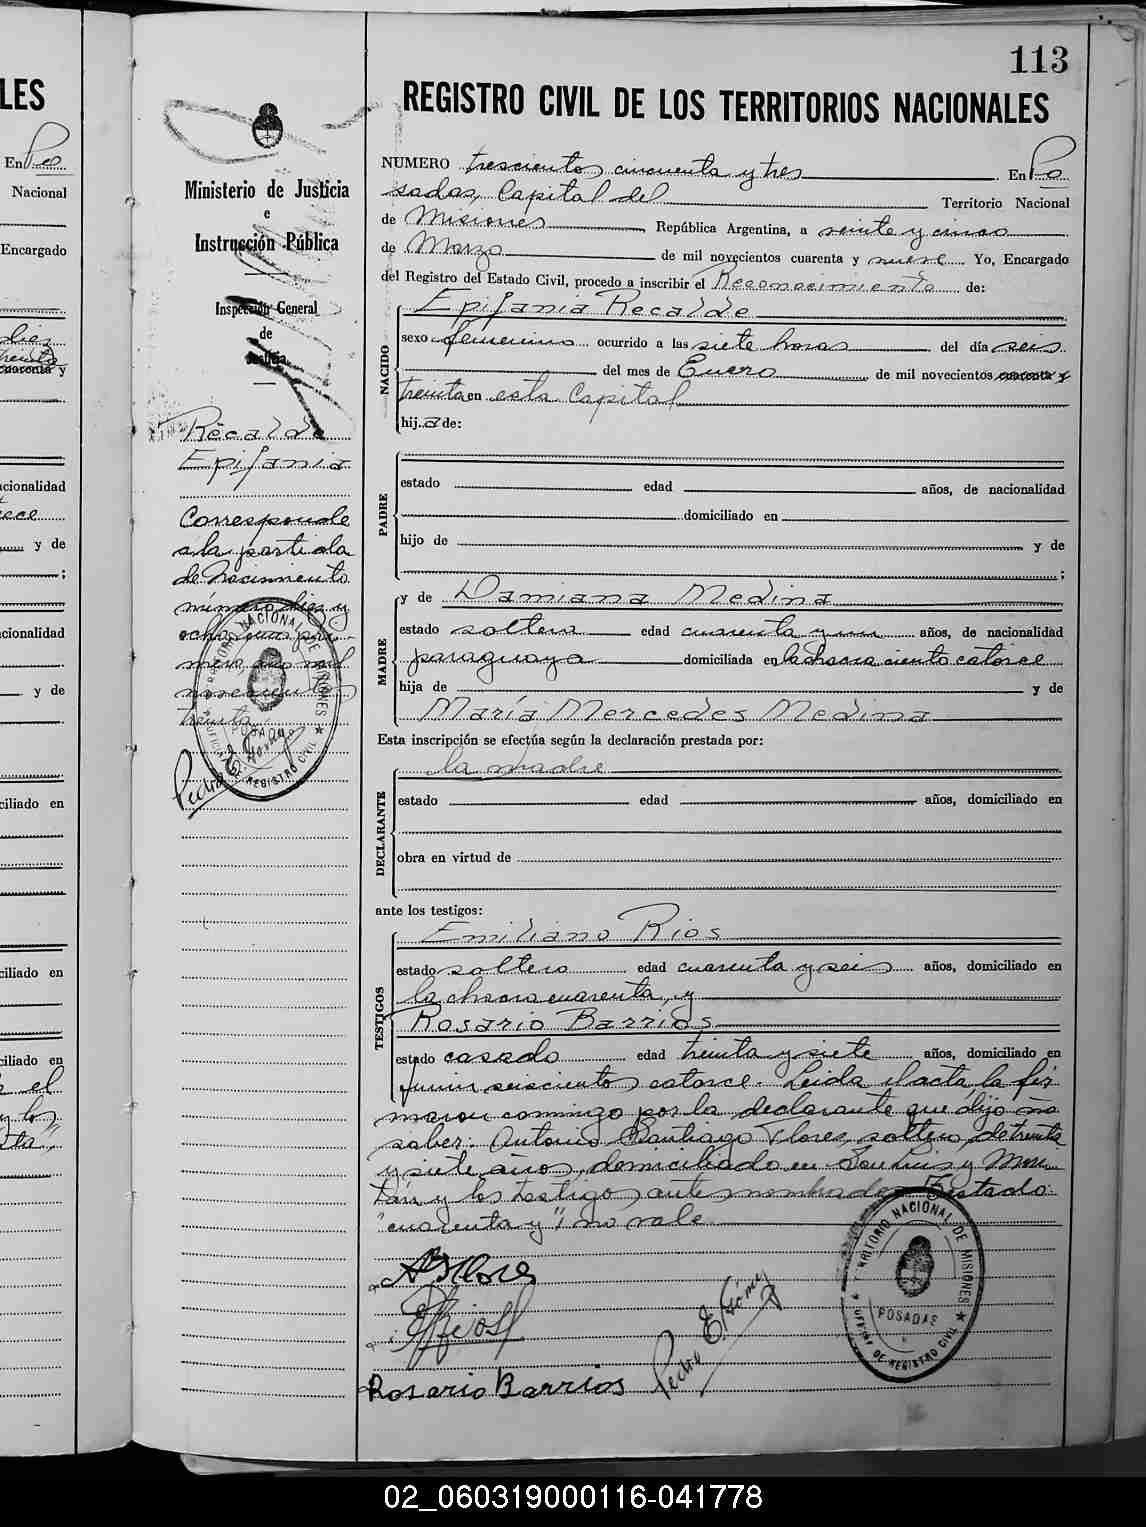 113
REGISTRO CIVIL DE LOS TERRITORIOS NACIONALES
NUMERO trescientos cincuenta y tres En Po
sadas, Capital del Territorio Nacional
de Misiones República Argentina, a veinte y cinco
de Marzo de mil novecientos cuarenta y nueve Yo, Encargado
del Registro del Estado Civil, procedo a inscribir el Reconocimiento de:
NACIDO
Epifania Recalde
sexo femenino ocurrido a las siete horas del día seis
del mes de Enero de mil novecientos cuarenta y
treinta en esta Capital
hija de:
PADRE
estado edad años, de nacionalidad
domiciliado en
hijo de y de
;
MADRE
y de Damiana Medina
estado soltera edad cuarenta y un años, de nacionalidad
paraguaya domiciliada en la chacra ciento catorce
hija de y de
María Mercedes Medina
Esta inscripción se efectúa según la declaración prestada por:
DECLARANTE
la madre
estado edad años, domiciliado en
obra en virtud de
ante los testigos:
TESTIGOS
Emiliano Rios
estado soltero edad cuarenta y seis años, domiciliado en
la chacra cuarenta, y
Rosario Barrios
estado casado edad treinta y siete años, domiciliado en
Junin seiscientos catorce. Leida el acta la fir
maron conmingo por la declarante que dijo no
saber: Antonio Santiago Flores, soltero, de treinta
y siete años, domiciliado en San Luis y
y los testigos ante nombrados. Testado
"cuarenta y", no vale.
A S Flores
E Rios
Rosario Barrios
Pedro E.
TERRITORIO NACIONAL DE MISIONES
POSADAS
OFICINA DE REGISTRO CIVIL
Ministerio de Justicia
e
Instrucción Pública
Inspección General
de
Justicia
Recalde
Epifania
Corresponde
a la partida
de Nacimiento
número diez y
ocho
mero año mil
novecientos
treinta
TERRITORIO NACIONAL DE MISIONES
POSADAS
OFICINA DE REGISTRO CIVIL
Pedro E.
LES
En Po
Nacional
Encargado
cuarenta y
cionalidad
y de
;
cionalidad
y de
ciliado en
ciliado en
ciliado en
el
y los
02_060319000116-041778